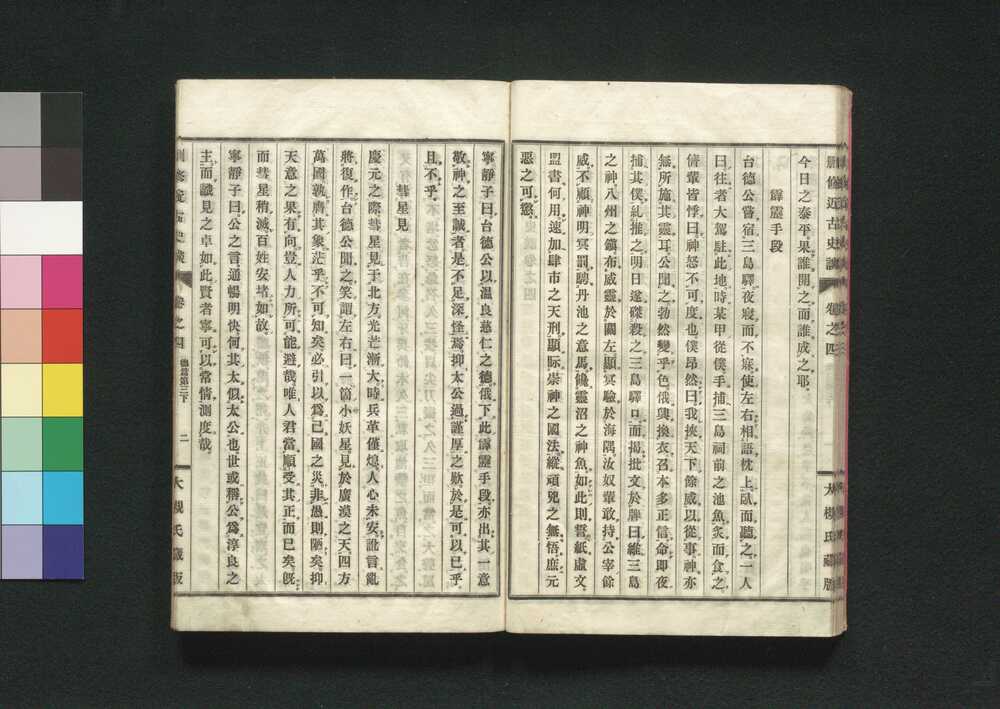 刪修近古史談 卷之四 大槻氏藏版
今日之泰平果誰開之而誰成之耶
霹靂手段
台德公嘗宿三島驛夜寢而不寐使左右相語枕上臥而聽之一人
曰往者大駕駐此地時某甲從僕手捕三島祠前之池魚炙而食之
儕輩皆悸曰神怒不可度也僕昂然曰我挾天下餘威以從事神亦
無所施其靈耳公聞之勃然變乎色俄興換衣召本多正信命即夜
捕其僕糺推之明日遂磔殺之三島驛口而揭批文於牌曰維三島
之神八州之鎭布威靈於關左顯冥驗於海隅汝奴輩敢持公宰餘
威不顧神明冥罰騁丹池之意馬饞靈沼之神魚如此則誓紙虛文
盟書何用速加肆市之天刑顯際崇神之國法縱頑兇之無悟庶元
惡之可懲
寧靜子曰台德公以溫良慈仁之德俄下此霹靂手段亦出其一意
敬神之至誠者是不足深怪焉抑太公過謹厚之歎於是可以已乎
且不乎
彗星見
慶元之際彗星見于北方光芒漸大時兵革僅熄人心未安訛言亂
將復作台德公聞之笑謂左右曰一箇小妖星見於廣漠之天四方
萬國孰膺其象茫乎不可知矣必引以爲己國之災非愚則陋矣抑
天意之果有向豈人力所可能避哉唯人君當順受其正而已矣旣
而彗星稍滅百姓安堵如故
寧靜子曰公之言通暢明快何其太似太公也世或稱公爲淳良之
主而識見之卓如此賢者寧可以常情測度哉
刪修近古史談 卷之四 德篇第三下 二 大槻氏藏版